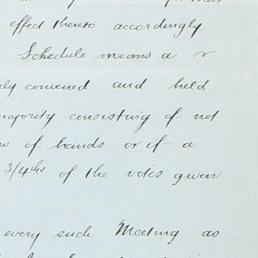 effect thereto accordingly
Schedule means a r
convened and held
majority consisting of not
of hands or if a
3/4ths of the votes given
every such Meeting as